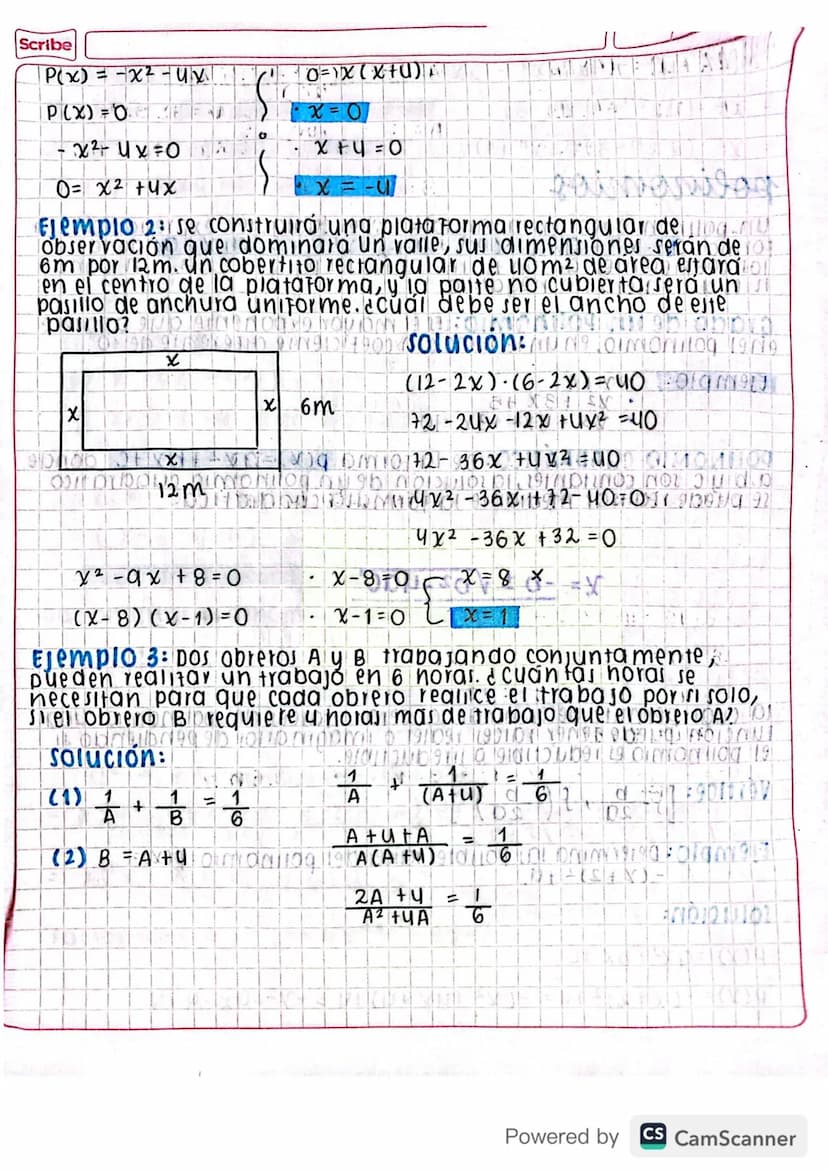 Scribe
P(x) = -x² - 4x
P(x) = 0
- x² - 4x = 0
0 = x² + 4x
0 = x (x+4)
x = 0
x + 4 = 0
x = -4
Ejemplo 2: se construirá una plataforma rectangular de
observación que dominara un valle, sus dimensiones serán de
6m por 12m. un cobertito rectangular de 40m² de área estará
en el centro de la plataforma, y la parte no cubierta será un
pasillo de anchura uniforme. ¿cuál debe ser el ancho de este
pasillo?
x
x
x
x
6m
12m
Solución:
(12-2x)·(6-2x)=40
72 -24x -12x +4x² =40
72 - 36x +4x² = 40
4x² -36x + 72 - 40 = 0
4x² -36x +32 = 0
x² -9x +8 = 0
(x-8)(x-1)=0
· x-8=0
· x-1=0
x = 8 x
x = 1
Ejemplo 3: Dos obreros A y B trabajando conjuntamente,
pueden realizar un trabajo en 6 horas. ¿cuántas horas se
necesitan para que cada obrero realice el trabajo por si solo,
si el obrero B requiere 4 horas mas de trabajo que el obrero A?
Solución:
(1) 1/A + 1/B = 1/6
(2) B = A+4
1/A + 1/(A+4) = 1/6
A+4+A/A(A+4) = 1/6
2A +4/A² +4A = 1/6
Powered by CS CamScanner